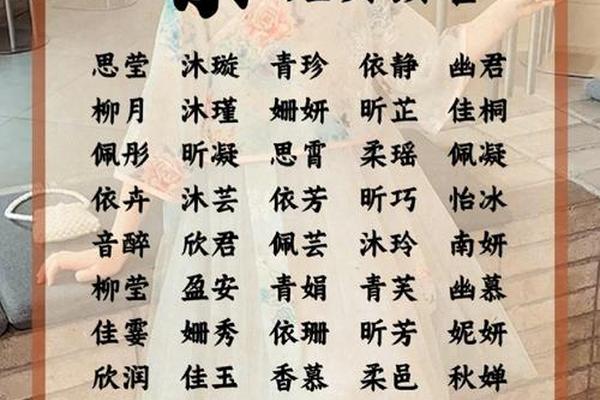 思莹 沐璇 青珍 依静 幽君
柳月 沐瑾 姗妍 昕芷 佳桐
佩彤 昕凝 思霄 柔瑶 佩凝
依卉 沐芸 依芳 昕巧 怡冰
音醉 欣君 佩芸 沐玲 南妍
柳莹 盈安 青娟 青芙 幽慕
佳霎 姗秀 依珊 昕芳 妮妍
欣润 佳玉 香慕 柔邑 秋婵